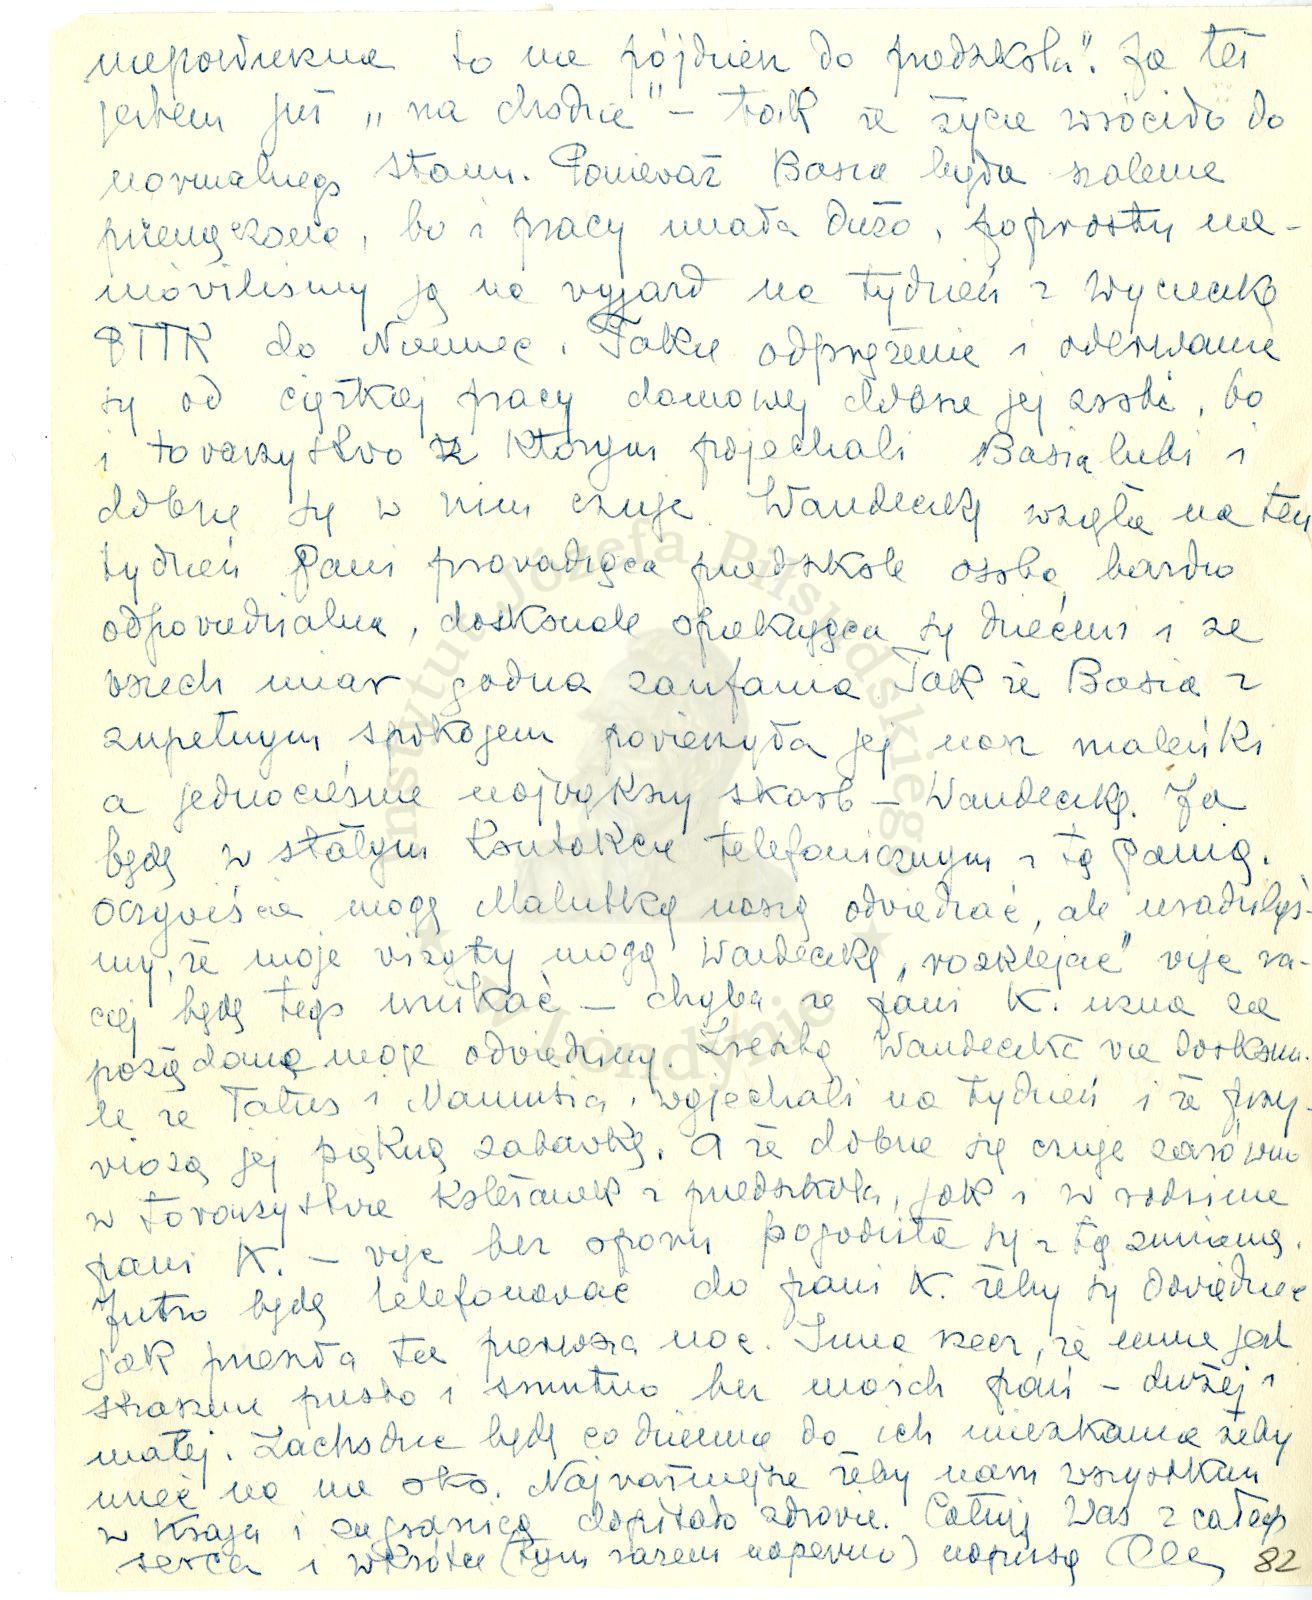 niepowiększa to nie pójdziesz do przedszkola". Ja też
jestem już „na chodzie" – tak że życie wróciło do
normalnego stanu. Ponieważ Basia była szalenie
przemęczona, bo i pracy miała dużo, poprostu na-
mówiliśmy ją na wyjazd na tydzień z wycieczką
PTTK do Niemiec. Takie odprężenie i oderwanie
się od ciężkiej pracy domowej dobrze jej zrobi, bo
i towarzystwo z którym pojechali Basia lubi i
dobrze się w nim czuje. Wandeczkę wzięła na ten
tydzień Pani prowadząca przedszkole osoba bardzo
odpowiedzialna, doskonale opiekująca się dziećmi i ze
wszech miar godna zaufania. Tak że Basia z
zupełnym spokojem powierzyła jej nasz maleńki
a jednocześnie największy skarb – Wandeczkę. Ja
będę w stałym kontakcie telefonicznym z tą Panią.
Oczywiście mogę Malutką naszą odwiedzać, ale uradziłyś-
my, że moje wizyty mogą Wandeczkę „rozklejać" więc ra-
czej będę tego unikać – chyba że pani K. uzna za
pożądane moje odwiedziny. Zresztą Wandeczka wie doskona-
le że Tatuś i Mamusia wyjechali na tydzień i że przy-
wiozą jej piękną zabawkę. A że dobrze się czuje zarówno
w towarzystwie koleżanek z przedszkola, jak i w rodzinie
pani K. – więc bez oporu pogodziła się z tą zmianą.
Jutro będę telefonować do pani K. żeby się dowiedzieć
jak przeszła ta pierwsza noc. Inna rzecz, że mnie jest
strasznie pusto i smutno bez moich pań – dużej i
małej. Zachodzić będę codziennie do ich mieszkania żeby
mieć na nie oko. Najważniejsze żeby nam wszystkim
w kraju i zagranicą dopisało zdrowie. Całuję Was z całego
serca i wkrótce (tym razem napewno) napiszę
82
Instytut Józefa Piłsudskiego
w Londynie